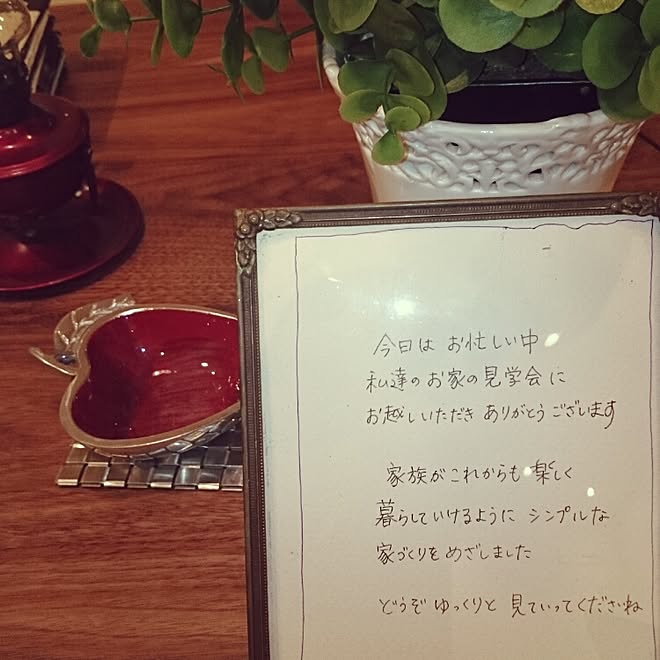 今日は お忙しい中
私達の お家の見学会に
お越しいただき ありがとうございます
家族が これからも 楽しく
暮らしていけるように シンプルな
家づくりを めざしました
どうぞ ゆっくりと 見ていってくださいね